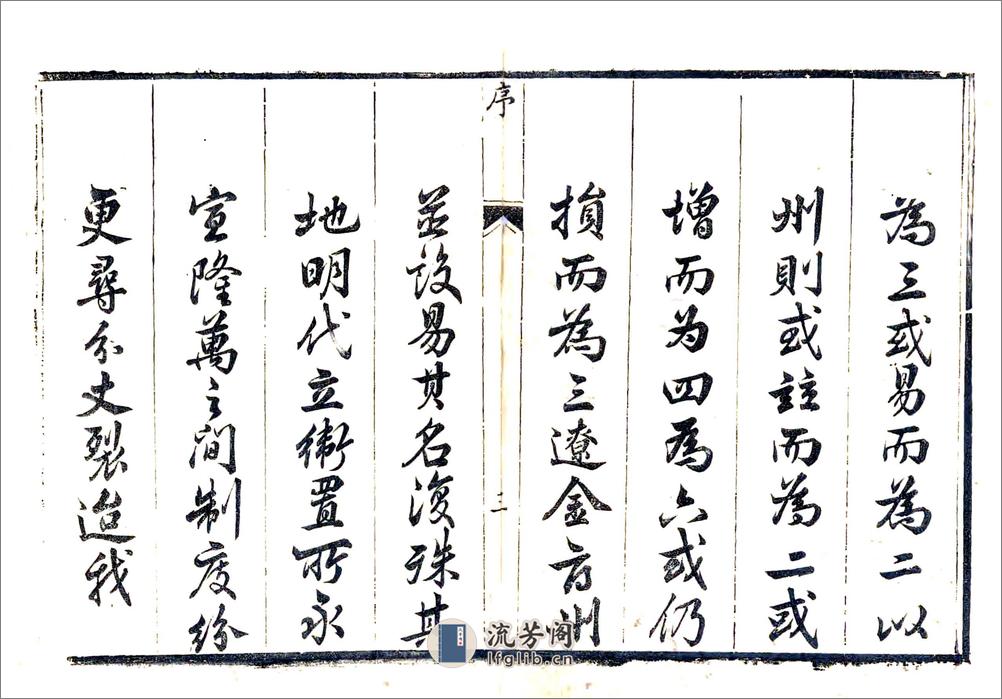 為三或易而為二以
州則或註而為二或
增而为四為六或仍
損而為三遼金方州
序
二
並設易其名復殊其
地明代立衛置所永
宣隆萬之間制度紛
更尋分丈裂迨我
流芳阁
lfglib.cn